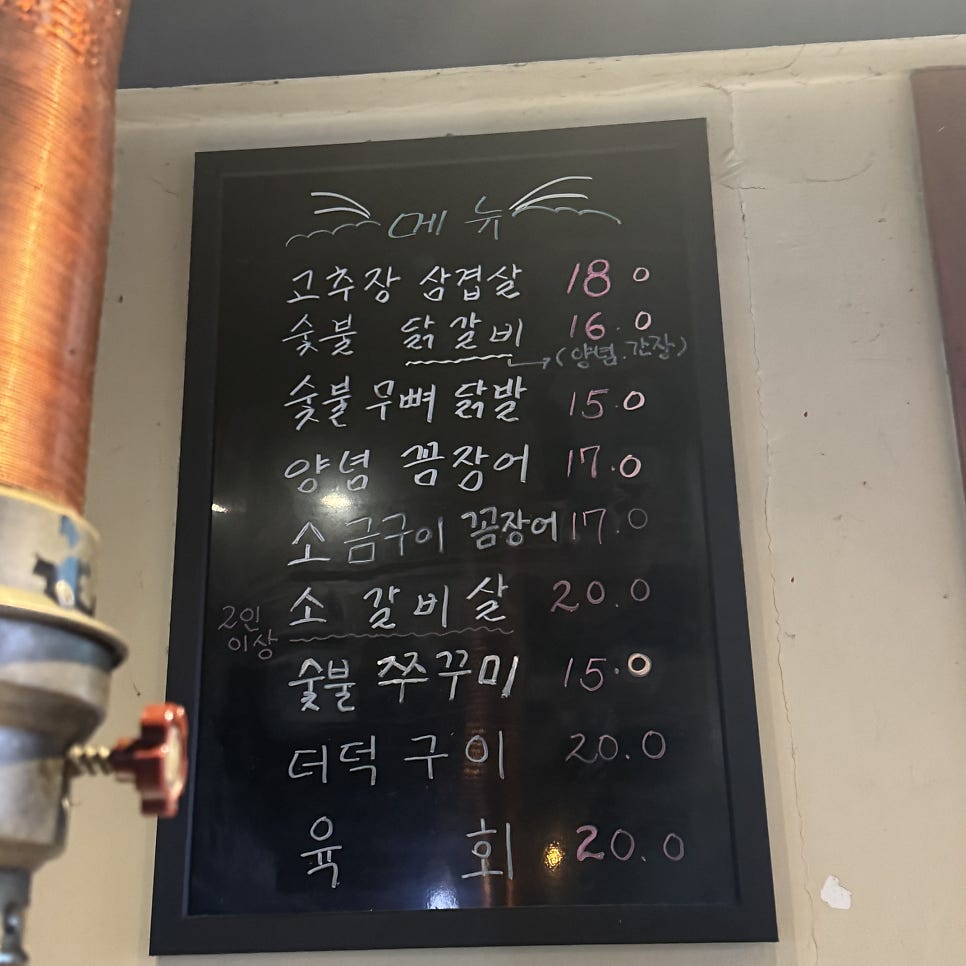 메뉴
고추장 삼겹살 18.0
숯불 닭갈비 16.0
(양념.간장)
숯불 무뼈 닭발 15.0
양념 꼼장어 17.0
소금구이 꼼장어 17.0
소 갈비살 20.0
2인
이상
숯불 쭈꾸미 15.0
더덕 구이 20.0
육회 20.0